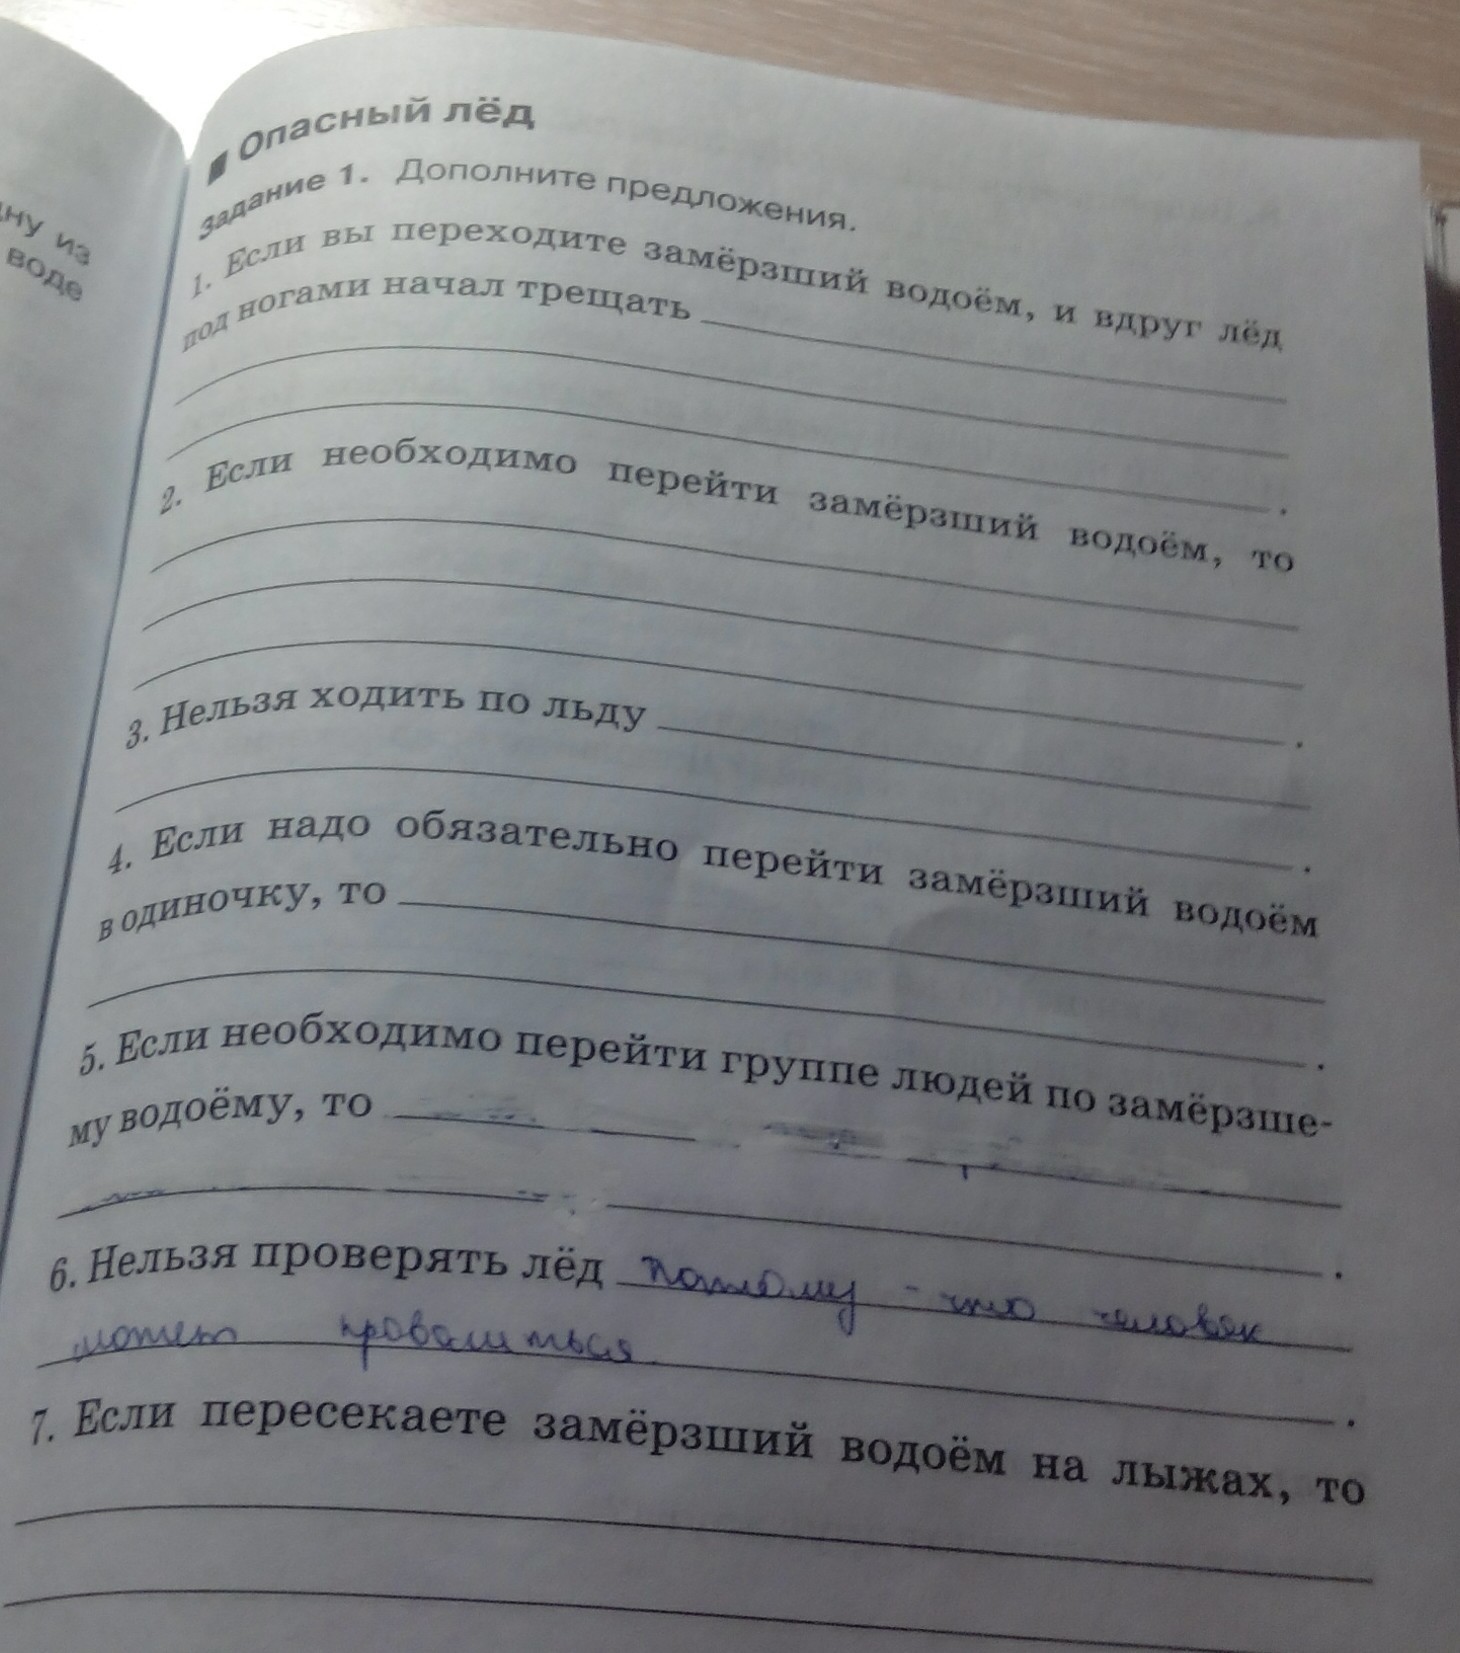 ну из
воде
Опасный лёд
Задание 1. Дополните предложения.
1. Если вы переходите замёрзший водоём, и вдруг лёд
под ногами начал трещать
.
2. Если необходимо перейти замёрзший водоём, то
.
3. Нельзя ходить по льду
.
4. Если надо обязательно перейти замёрзший водоём
в одиночку, то
.
5. Если необходимо перейти группе людей по замёрзше-
му водоёму, то
.
6. Нельзя проверять лёд потому - что человек
может провалиться.
7. Если пересекаете замёрзший водоём на лыжах, то